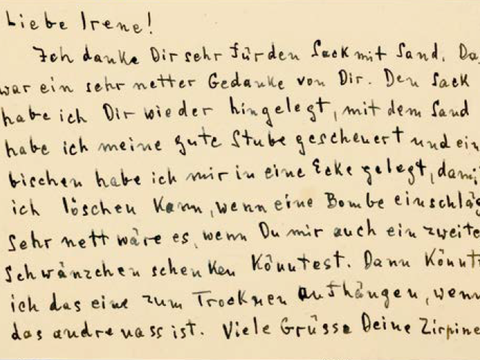 Liebe Irene!
Ich danke Dir sehr für den Sack mit Sand. Da
war ein sehr netter Gedanke von Dir. Den Sack
habe ich Dir wieder hingelegt, mit dem Sand
habe ich meine gute Stube gescheuert und ein
bischen habe ich mir in eine Ecke gelegt, dami
ich löschen kann, wenn eine Bombe einschläg
Sehr nett wäre es, wenn Du mir auch ein zweite
Schwänzchen schenken könntest. Dann könnt
ich das eine zum Trocknen aufhängen, wenn
das andre nass ist. Viele Grüsse Deine Zirpine